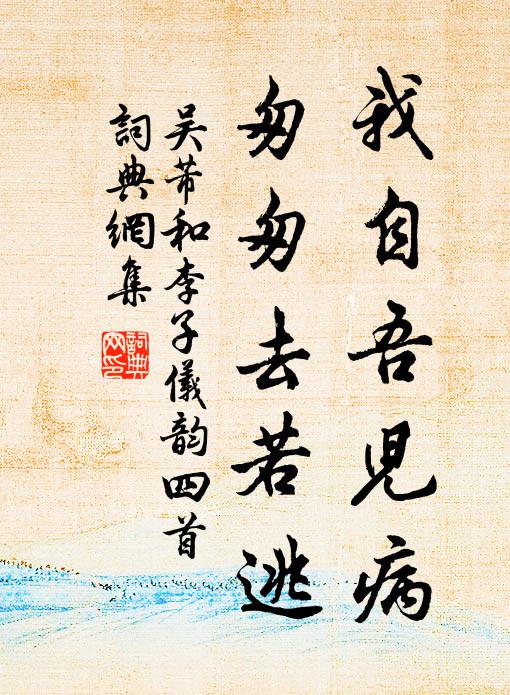 我自吾児病
匆匆去若逃
吴芾和李子儀韵四首
詞典網集
詞典網印